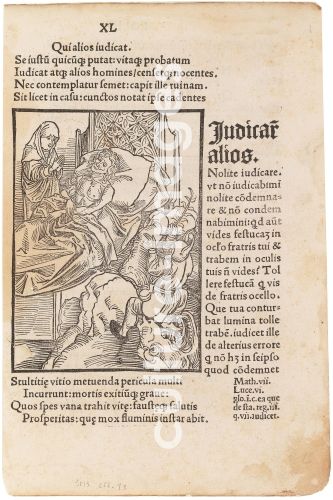 XL
Qui alios iudicat.
Se iustū quicūq; putat: vitaq; probatum
Iudicat atq; alios homines/censetq; nocentes.
Nec contemplatur semet: capit ille ruinam.
Sit licet in casu: cunctos notat ipse cadentes
Iudicar̄
alios.
Nolite iudicare.
vt nō iudicabimī
nolite cōdemna-
re & nō condem
nabimini: qd aūt
vides festucā in
ocl'o fratris tui &
trabem in oculis
tuis n̄ vides? Tol
lere festucā q vis
de fratris ocello.
Que tua contur-
bat lumina tolle
trabē. iudicet ille
de alterius errore
q nō hʒ in seipso
quod cōdemnet
Math. vii.
Luce. vi.
glo. i. c. ea que
de sta. reg. iii.
q. vii. iudicet.
Stultitię vitio metuenda pericula multi
Incurrunt: mortis exitiūq; graue:
Quos spes vana trahit vitę: faustęq; salutis
Prosperitas: que mox fluminis instar abit.
culture-images